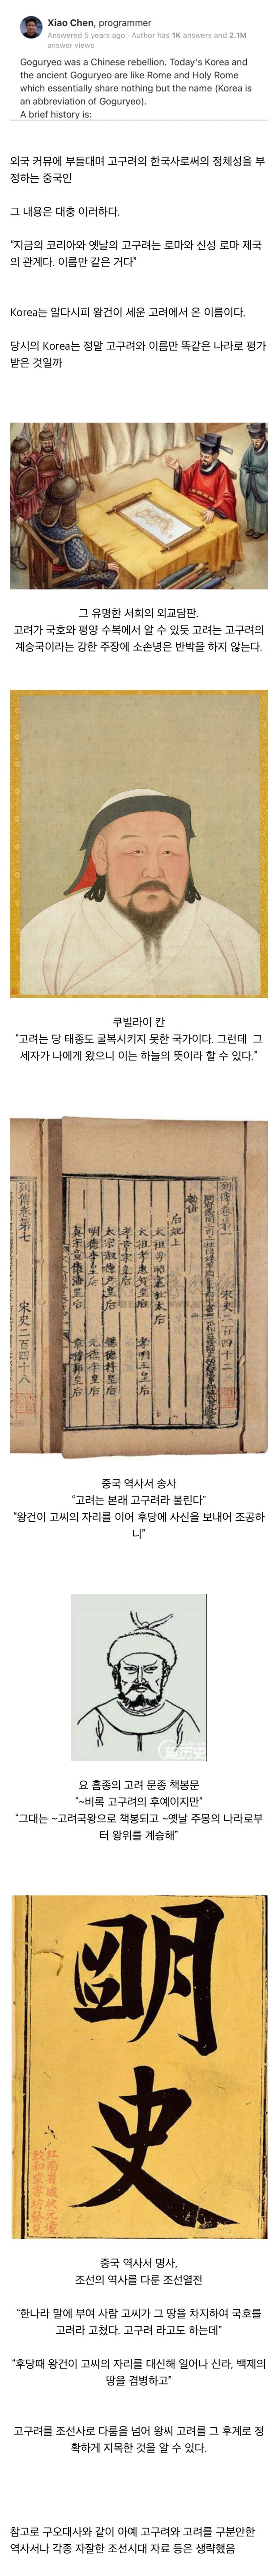 Xiao Chen, programmer
Answered 5 years ago · Author has 1K answers and 2.1M
answer views
Goguryeo was a Chinese rebellion. Today's Korea and
the ancient Goguryeo are like Rome and Holy Rome
which essentially share nothing but the name (Korea is
an abbreviation of Goguryeo).
A brief history is:
외국 커뮤에 부들대며 고구려의 한국사로써의 정체성을 부
정하는 중국인
그 내용은 대충 이러하다.
"지금의 코리아와 옛날의 고구려는 로마와 신성 로마 제국
의 관계다. 이름만 같은 거다"
Korea는 알다시피 왕건이 세운 고려에서 온 이름이다.
당시의 Korea는 정말 고구려와 이름만 똑같은 나라로 평가
받은 것일까
그 유명한 서희의 외교담판.
고려가 국호와 평양 수복에서 알 수 있듯 고려는 고구려의
계승국이라는 강한 주장에 소손녕은 반박을 하지 않는다.
쿠빌라이 칸
"고려는 당 태종도 굴복시키지 못한 국가이다. 그런데 그
세자가 나에게 왔으니 이는 하늘의 뜻이라 할 수 있다."
列傳卷第七
宋史二百四十八
后妃上
列傳卷第一
宋史二百四十二
중국 역사서 송사
"고려는 본래 고구려라 불린다"
"왕건이 고씨의 자리를 이어 후당에 사신을 보내어 조공하
니"
요 흥종의 고려 문종 책봉문
"~비록 고구려의 후예이지만"
"그대는 ~고려국왕으로 책봉되고 ~옛날 주몽의 나라로부
터 왕위를 계승해"
明
史
중국 역사서 명사,
조선의 역사를 다룬 조선열전
"한나라 말에 부여 사람 고씨가 그 땅을 차지하여 국호를
고려라 고쳤다. 고구려 라고도 하는데"
"후당때 왕건이 고씨의 자리를 대신해 일어나 신라, 백제의
땅을 겸병하고"
고구려를 조선사로 다룸을 넘어 왕씨 고려를 그 후계로 정
확하게 지목한 것을 알 수 있다.
참고로 구오대사와 같이 아예 고구려와 고려를 구분안한
역사서나 각종 자잘한 조선시대 자료 등은 생략했음